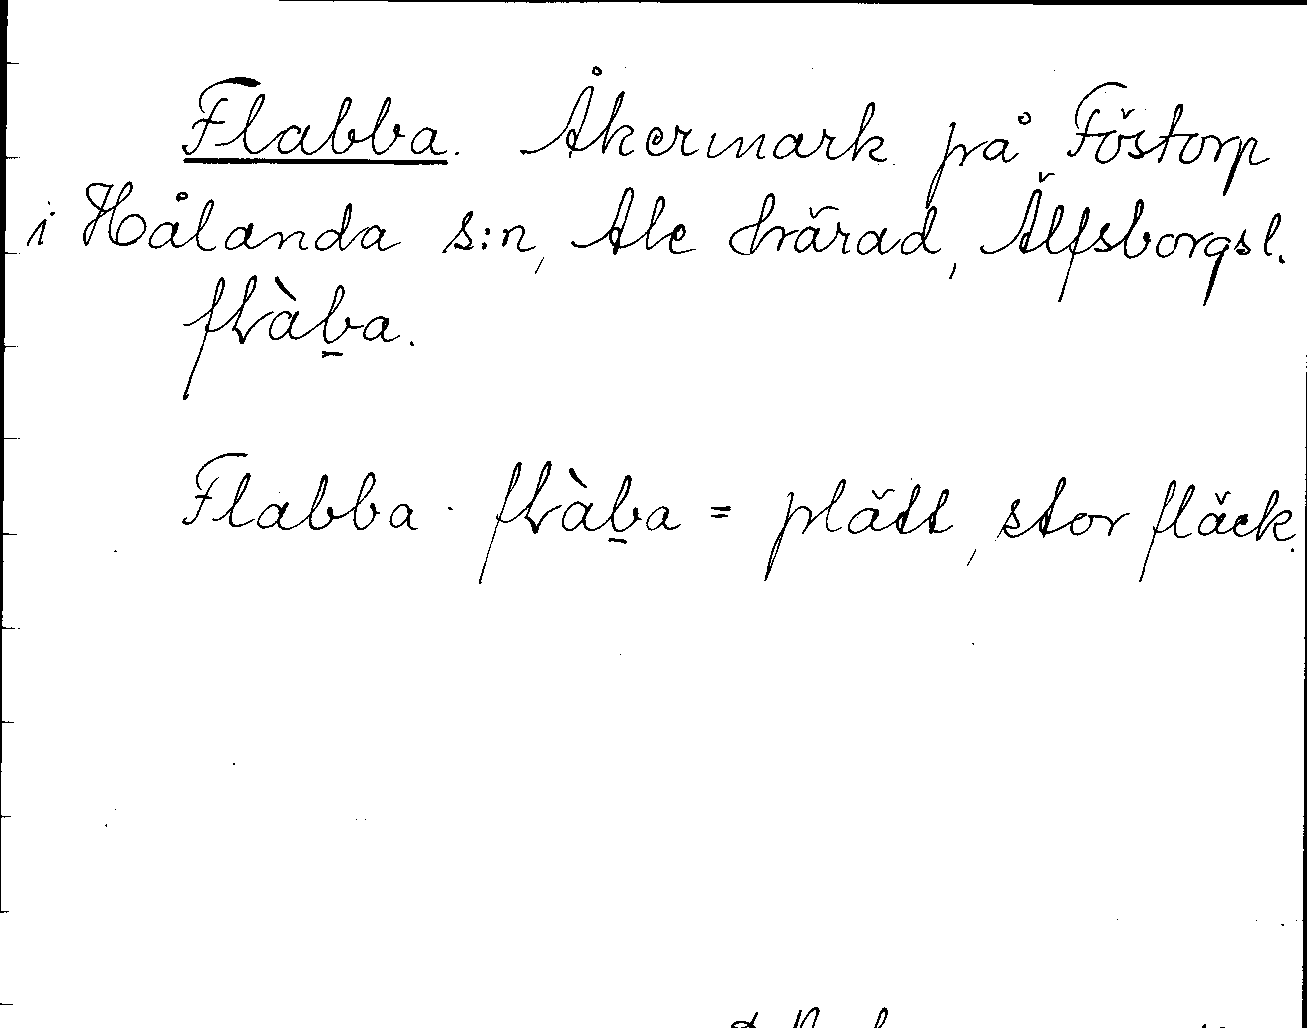 Flabba. Åkermark på Föstorp
i Hålanda s:n, Ale härad, Älfsborgsl.
flàb̲a.
Flabba. flàb̲a = plätt, stor fläck.